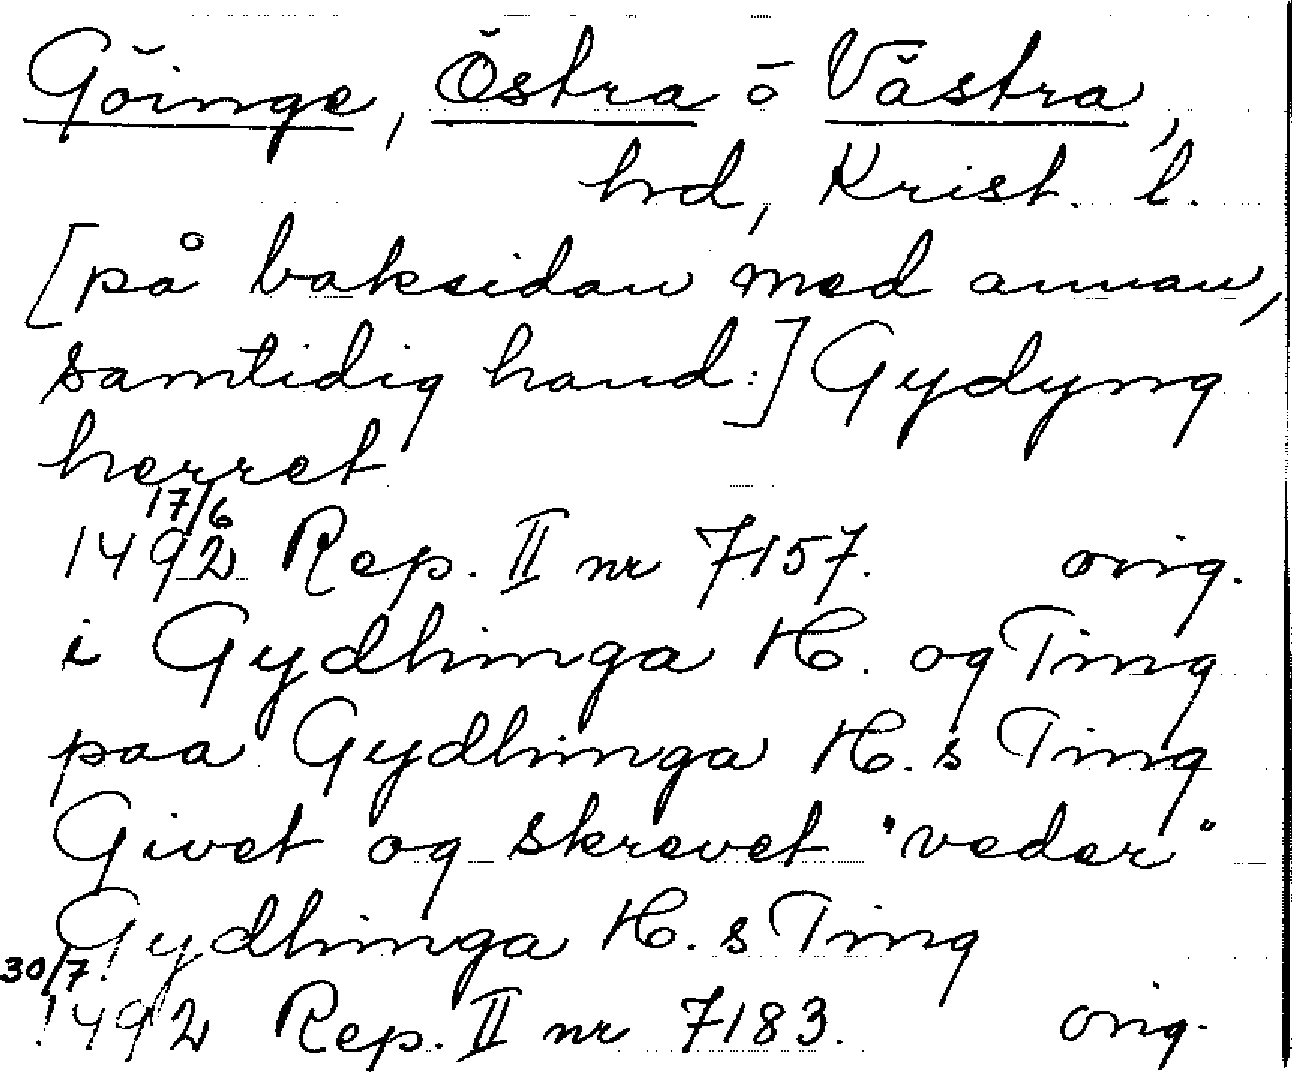 Göinge, Östra o Västra,
hd, Krist. l.
[på baksidan med annan,
samtidig hand:] Gydyng
herret
17/6
1492 Rep. II nr 7157. orig.
i Gydhinga H. og Ting
paa Gydhinga H.s Ting
Givet og skrevet "veder"
Gydhinga H.s Ting
30/7
1492 Rep. II nr 7183. orig.